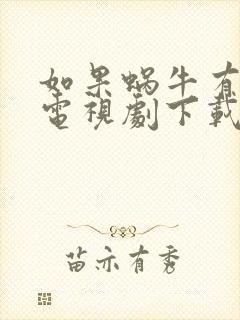 如果蜗牛有
電視劇下載
苗亦有秀